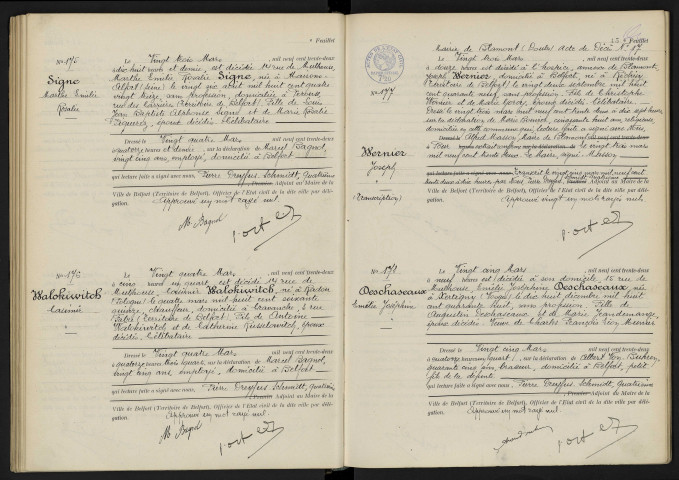 ° Feuillet
N° 175
Signe
Marthe Emilie
Rosalie
Le Vingt trois Mars, mil neuf cent trente-deux
à dix huit heures et demie, est décédée 14 rue de Mulhouse,
Marthe Emilie Rosalie Signe, née à Maisons-
Alfort (Seine) le vingt six août mil huit cent quatre
vingt sans profession, domiciliée à
rue des Territoire de Belfort. Fille de Louis
Jean Baptiste Alphonse Signe et de Marie Rosalie
époux décédés. Célibataire
Dressé le Vingt quatre Mars,
à quatorze heures et demie, sur la déclaration de Marcel Bagnol,
vingt cinq ans, employé, domicilié à Belfort
qui lecture faite a signé avec Nous, Pierre Dreyfus Schmidt, Quatrième
Premier Adjoint au Maire de la
Ville de Belfort (Territoire de Belfort), Officier de l'Etat civil de la dite ville par délé-
gation. Approuvé un mot rayé nul.
M. Bagnol
N° 176
Walokiwitch
Casimir
Le Vingt quatre Mars, mil neuf cent trente-deux
à cinq heures un quart est décédé 14 rue de
Mulhouse, Casimir Walokiwitch, né à
(Pologne) le quatre mars mil huit cent soixante
quinze, chauffeur, domicilié à Cravanche, 4 rue
(Territoire de Belfort). Fils de Antoine
Walokiwitch et de Catherine époux
décédés. Célibataire
Dressé le Vingt quatre Mars,
à quatorze heures trois quarts, sur la déclaration de Marcel Bagnol,
vingt cinq ans, employé, domicilié à Belfort
qui lecture faite a signé avec Nous, Pierre Dreyfus Schmidt, Quatrième
Premier Adjoint au Maire de la
Ville de Belfort (Territoire de Belfort), Officier de l'Etat civil de la dite ville par délé-
gation. Approuvé un mot rayé nul.
M. Bagnol
° Feuillet
N° 177
Wernier
Joseph
(Transcription)
Mairie de Blamont (Doubs) Acte de Décès N° 17
Le Vingt trois Mars mil neuf cent trente-deux
à douze heures est décédé à l'hospice, commune de Blamont,
Joseph Wernier, domicilié à Belfort, né à
(Territoire de Belfort) le vingt deux septembre mil huit
cent quarante neuf, sans profession. Fils de Christophe
Wernier et de Marie époux décédés. Célibataire.
Dressé le vingt trois Mars mil neuf cent trente deux à dix sept heures
sur la déclaration de Marie cinquante huit ans, religieuse,
domiciliée en cette commune qui, lecture faite a signé avec Nous,
Alfred Maire de Blamont
le vingt trois mars
mil neuf cent trente deux. Le Maire, signé:
qui lecture faite a signé avec Nous
Adjoint au Maire de la
Ville de Belfort (Territoire de Belfort), Officier de l'Etat civil de la dite ville par délé-
gation. Approuvé vingt un mots rayés nuls.
N° 178
Deschaseaux
Emélie Joséphine
Le Vingt cinq Mars, mil neuf cent trente-deux
à neuf heures est décédée à son domicile, 15 rue de
Mulhouse, Emélie Joséphine Deschaseaux, née
à (Vosges) le dix neuf décembre mil huit
cent quarante huit, sans profession. Fille de
Augustin Deschaseaux et de Marie Jeandemange,
époux décédés. Veuve de Charles François
Dressé le Vingt cinq Mars,
à quatorze heures un quart, sur la déclaration de Albert
quarante cinq ans, brasseur, domicilié à Belfort, petit
fils de la défunte
qui lecture faite a signé avec Nous, Pierre Dreyfus Schmidt, Quatrième
Premier Adjoint au Maire de la
Ville de Belfort (Territoire de Belfort), Officier de l'Etat civil de la dite ville par délé-
gation. Approuvé un mot rayé nul.